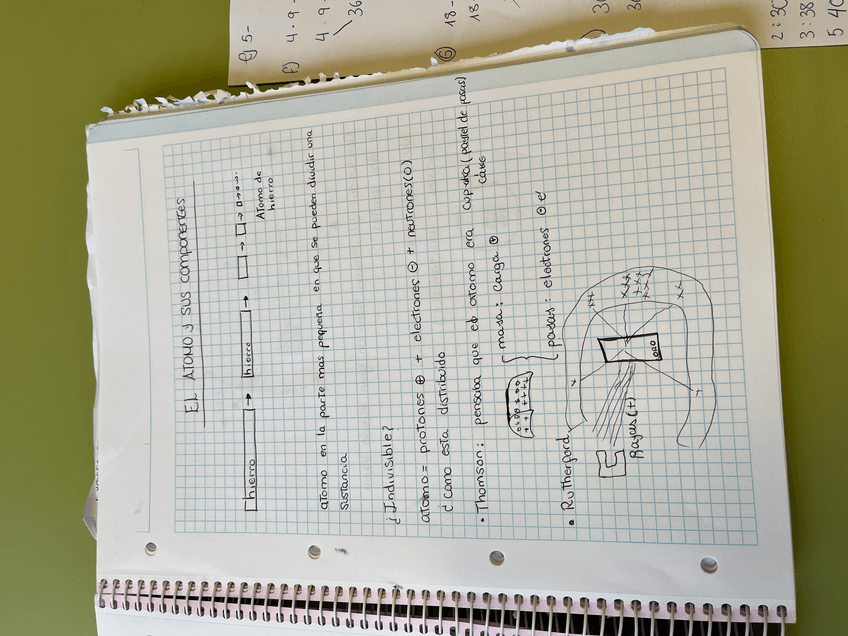 EL ATOMO Y SUS COMPONENTES
hierro → hierro → → → →
Atomo de
hierro
atomo en la parte mas pequeña en que se pueden dividir una
sustancia
¿Indivisible?
atomo = protones ⊕ + electrones ⊖ + neutrones (0)
¿como esta distribuido
• Thomson: pensaba que el atomo era (pastel de pasas)
masa: carga ⊕
pasas: electrones
• Rutherford
ORO
Rayos (+)
e) 5-
f) 4·9-
4·9-
36
6 18-
18
36
2:30
3:38
5 40